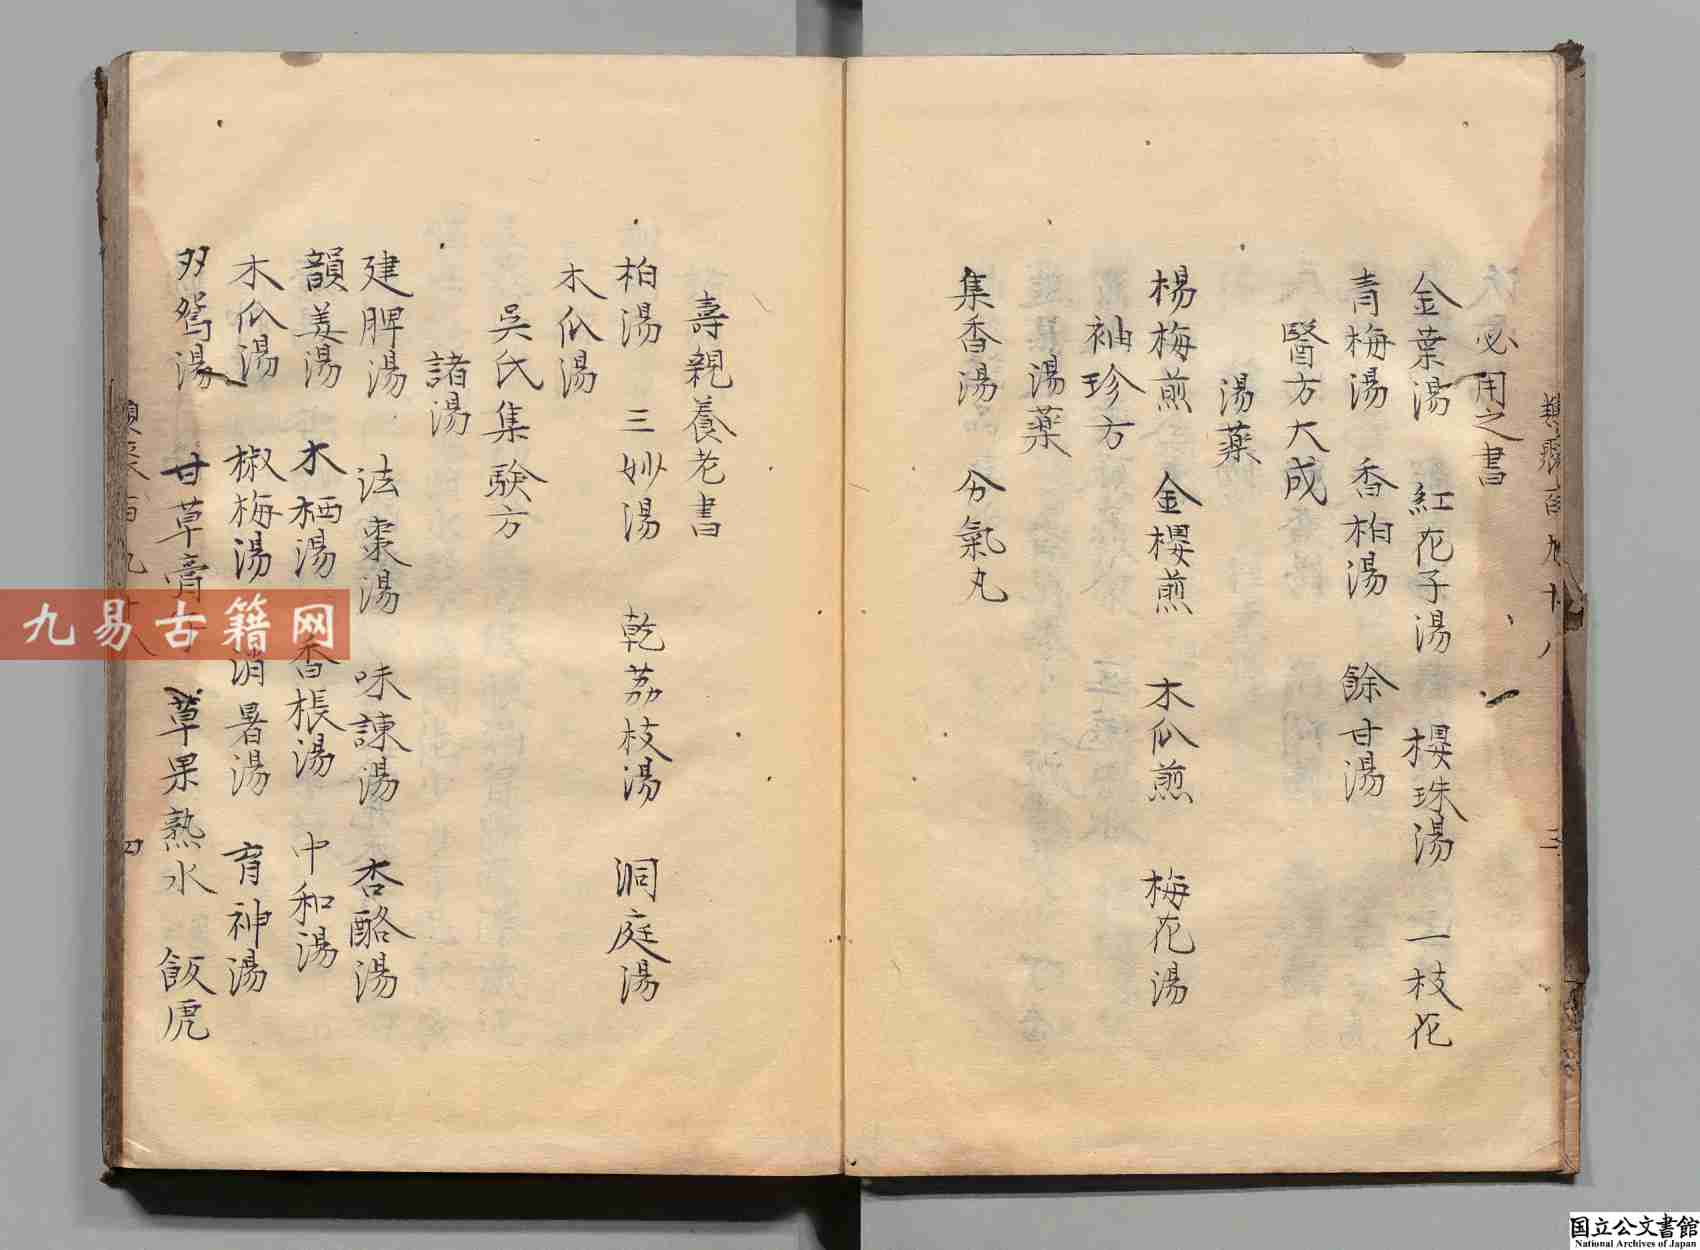 必用之書
金葉湯 紅花子湯 櫻珠湯 一枝花
青梅湯 香柏湯 餘甘湯
醫方大成
湯藥
楊梅煎 金櫻煎 木瓜煎 梅花湯
袖珍方
湯藥
集香湯 分氣丸
壽親養老書
柏湯 三妙湯 乾荔枝湯 洞庭湯
木瓜湯
吳氏集験方
諸湯
建脾湯 法棗湯 味諫湯 杏酪湯
韻姜湯 木栖湯 香棖湯 中和湯
木瓜湯 椒梅湯 消暑湯 育神湯
双鴛湯 甘草膏 草果熟水 飯虎
三
四
九易古籍网
国立公文書館
National Archives of Japan